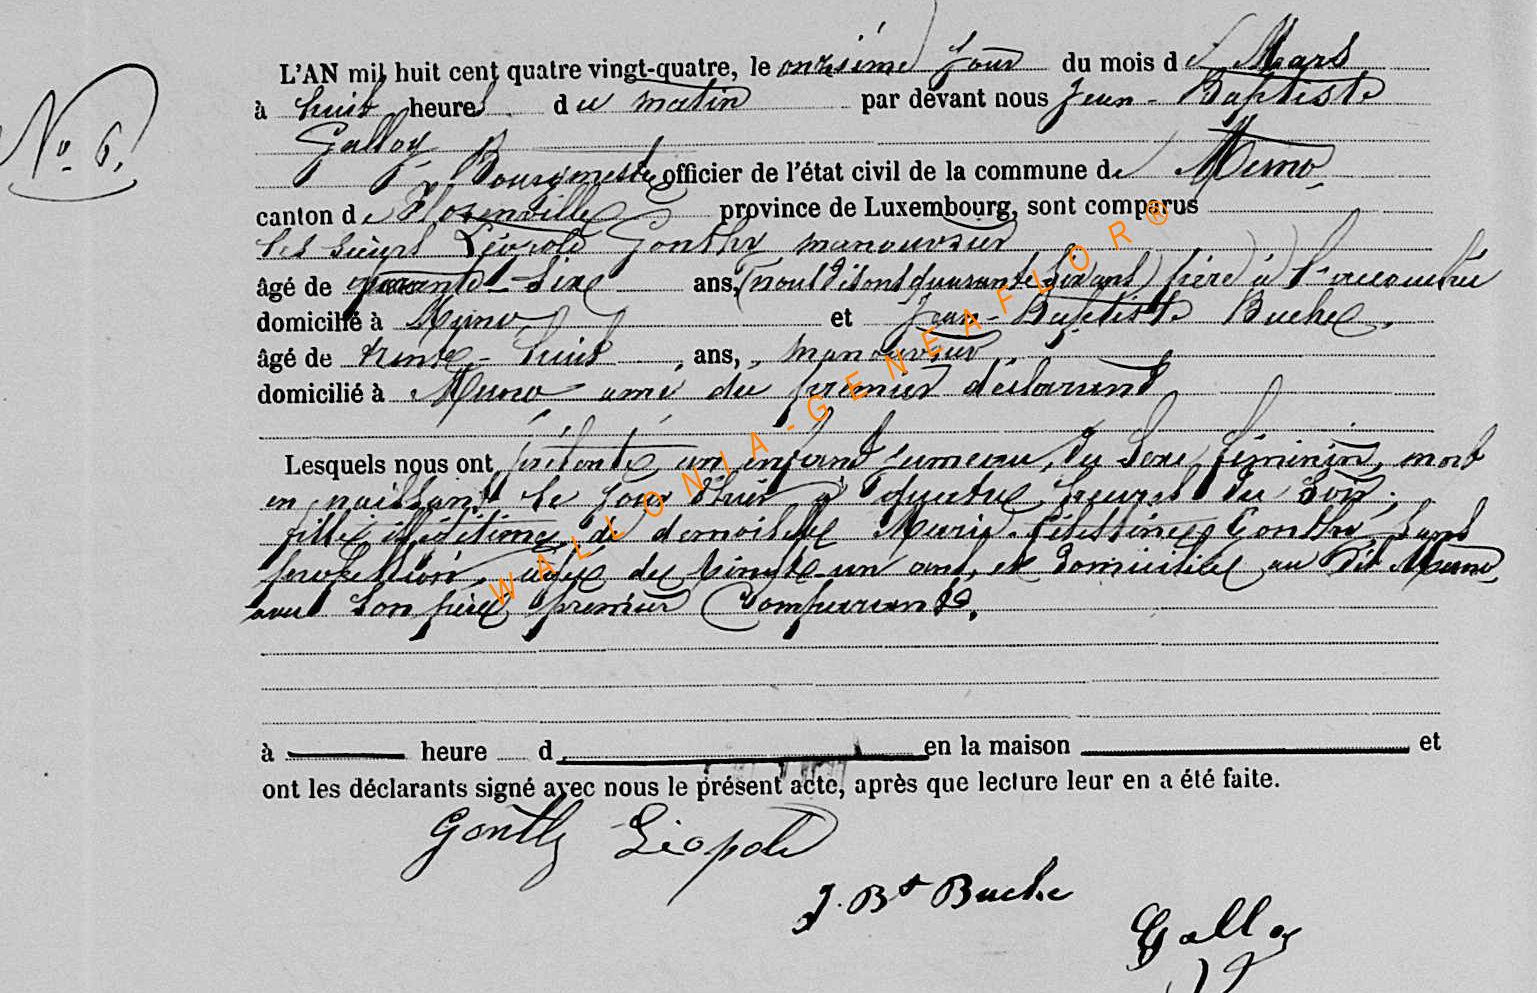 No 6.
L'AN mil huit cent quatre vingt-quatre, le onzième jour du mois de Mars
à huit heures du matin par devant nous Jean-Baptiste
Galloy
Bourgmestre officier de l'état civil de la commune de Muno,
canton de Florenville province de Luxembourg, sont comparus
les sieurs Léopold Gonthy manouvrier
âgé de quarante-six ans, (nous disons quarante six ans) père à l'accouchée
domicilié à Muno et Jean-Baptiste Buche,
âgé de trente-huit ans, manouvrier
domicilié à Muno ami du premier déclarant
Lesquels nous ont présenté un enfant jumeau, du sexe féminin, mort
en naissant le jour d'hier à quatre heures du soir,
fille illégitime de demoiselle Marie-Célestine Gonthy, sans
profession, agée de vingt-un ans, et domiciliée au dit Muno
avec son père premier Comparant.
à heure d en la maison et
ont les déclarants signé avec nous le présent acte, après que lecture leur en a été faite.
Gonthy Léopold
J. Bt Buche
Galloy
WALLONIA-GENEAFLOR®